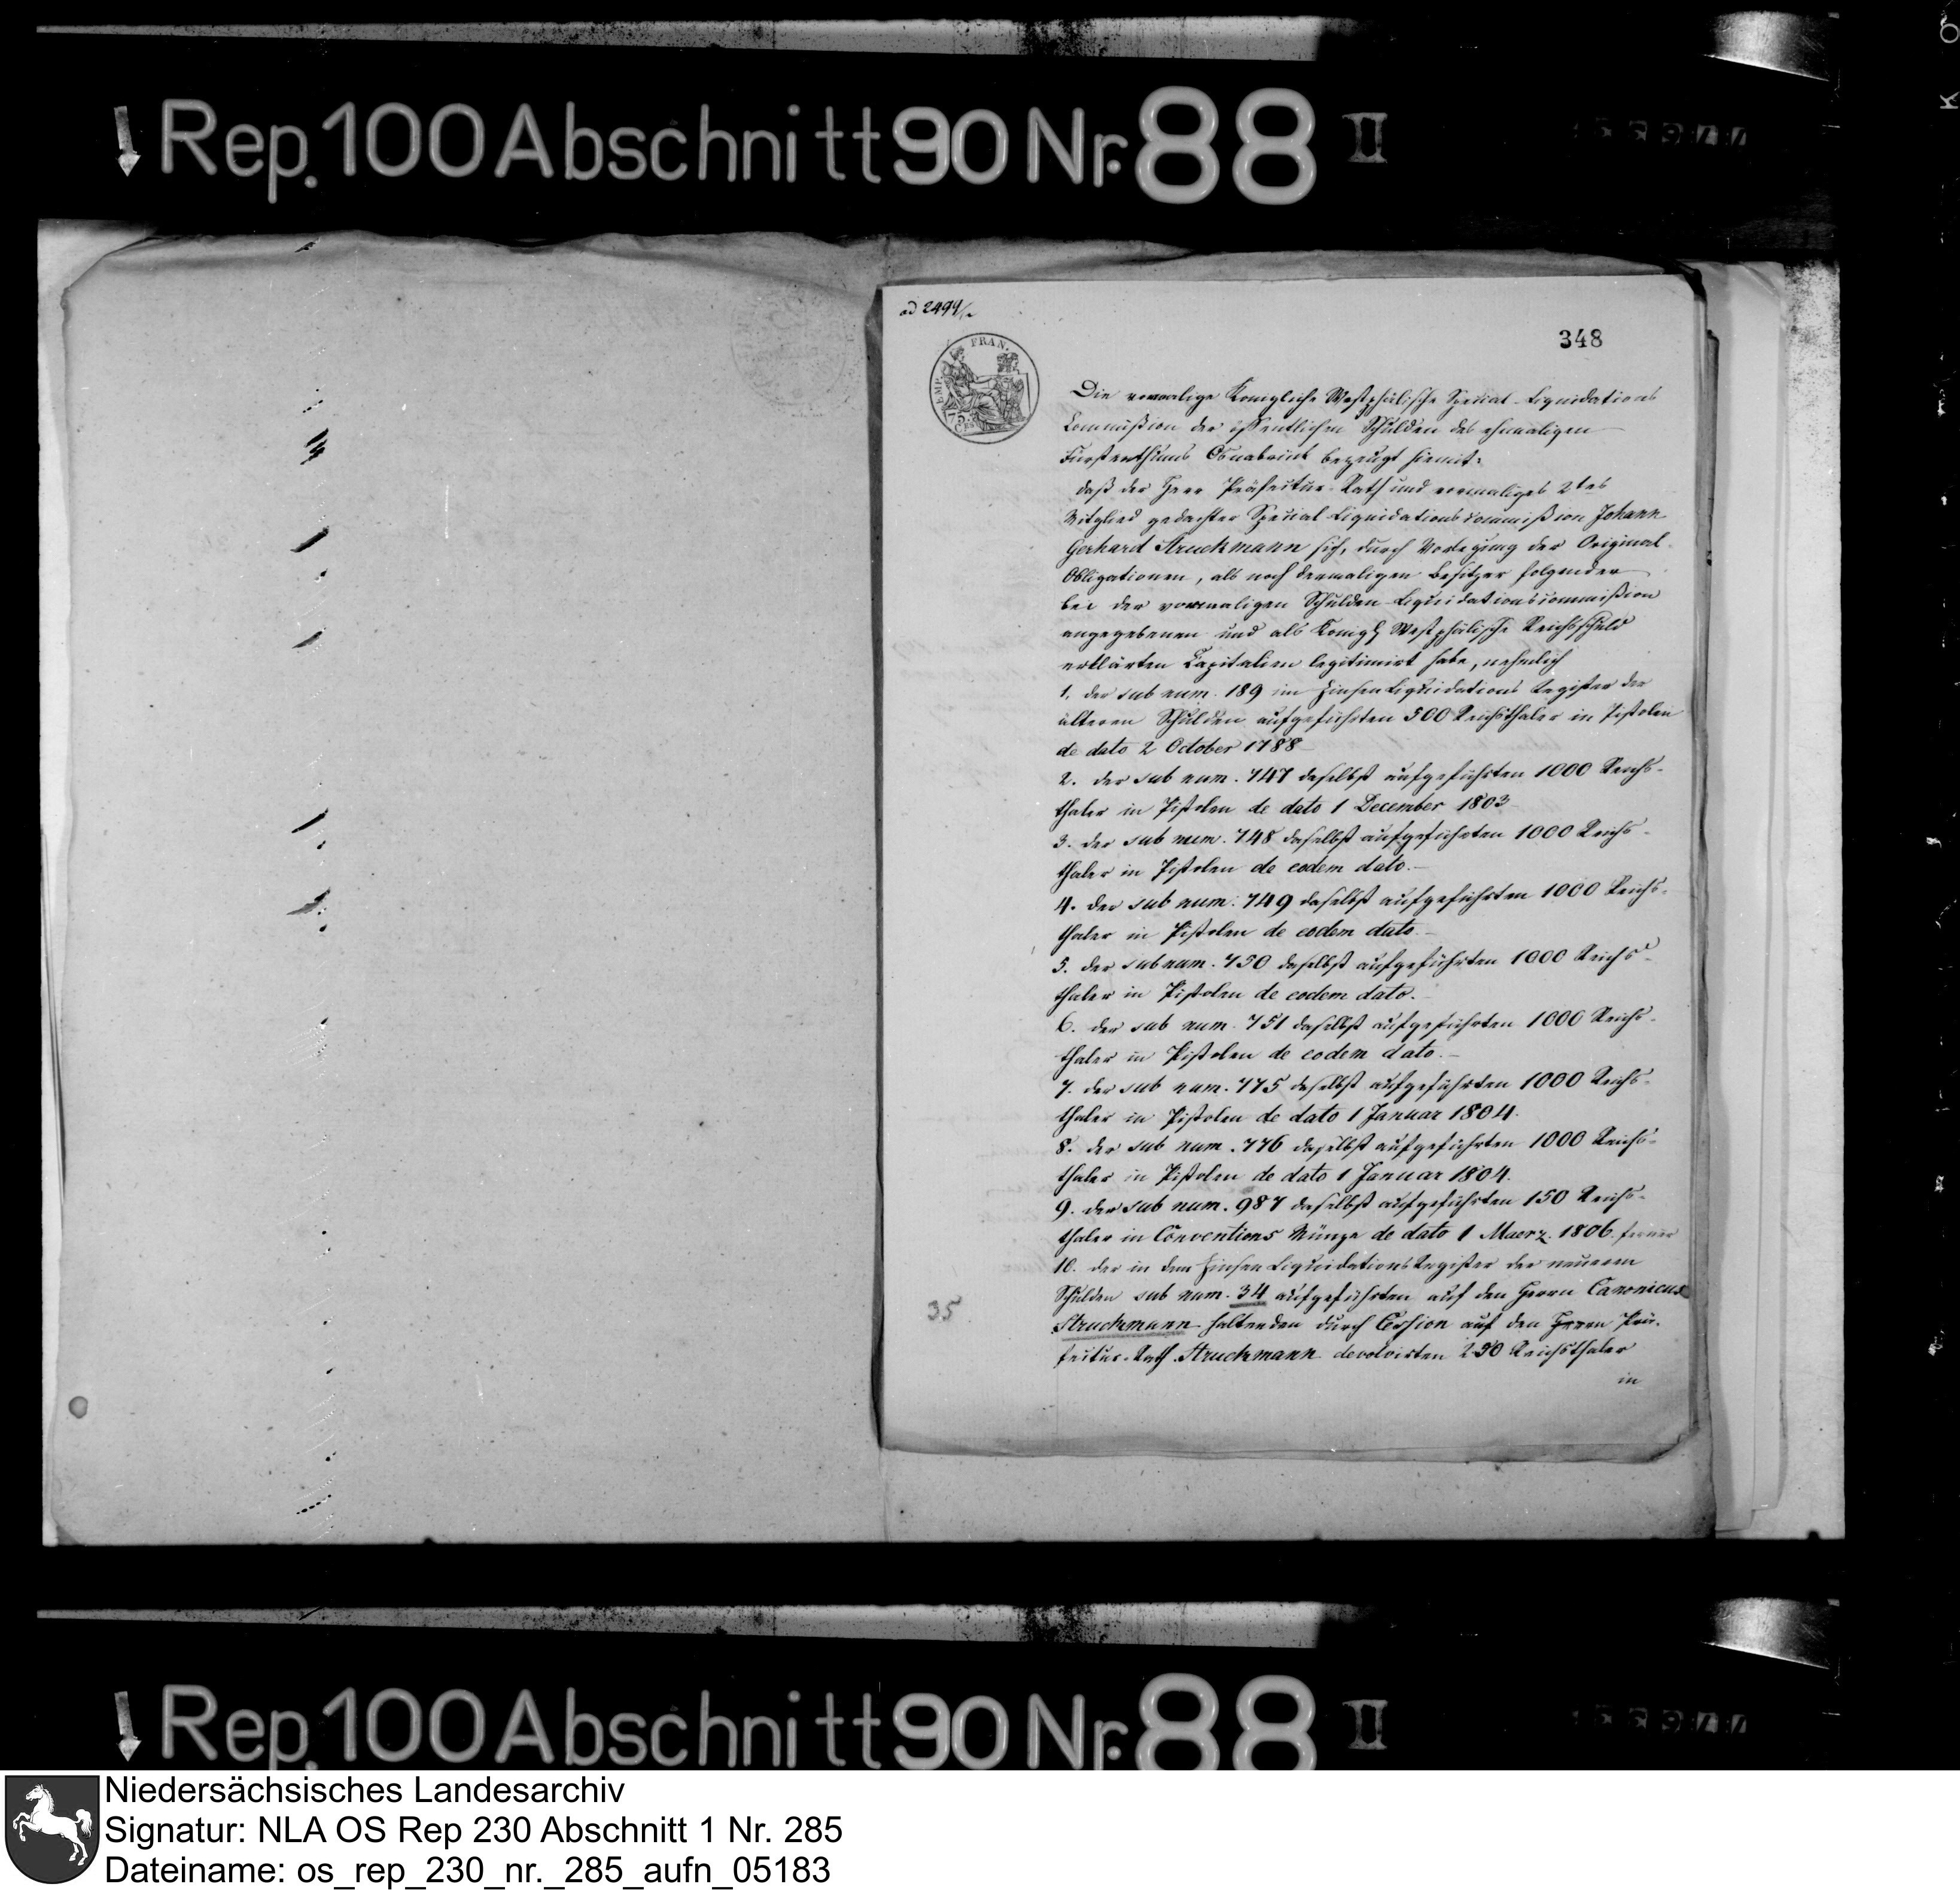 Rep. 100 Abschnitt 90 Nr. 88 II
ad 2499/2
348
EMP. FRAN.
75
CEN
Die vormalige Königliche Westphälische Special-Liquidations
Commißion der öffentlichen Schulden des ehmaligen
Fürstenthums Osnabrück bezeugt hiemit:
daß der Herr Präfectur-Rath und vormaliges 2tes
Mitglied gedachter Special-Liquidationscommißion Johann
Gerhard Struckmann sich, durch Vorlegung der Original
Obligationen, als noch dermaligen Besitzer folgender
bei der vormaligen Schulden-Liquidationscommißion
angegebenen und als Königl. Westphälische Reichsschuld
erklärten Capitalien legitimirt habe, nehmlich
1. der sub num. 189 im Zinsen Liquidations Register der
älteren Schulden aufgeführten 500 Reichsthaler in Pistolen
de dato 2 October 1788
2. der sub num. 747 daselbst aufgeführten 1000 Reichs-
thaler in Pistolen de dato 1 December 1803
3. der sub num. 748 daselbst aufgeführten 1000 Reichs-
thaler in Pistolen de eodem dato.
4. der sub num. 749 daselbst aufgeführten 1000 Reichs-
thaler in Pistolen de eodem dato.
5. der sub num. 750 daselbst aufgeführten 1000 Reichs-
thaler in Pistolen de eodem dato.
6. der sub num. 751 daselbst aufgeführten 1000 Reichs-
thaler in Pistolen de eodem dato.
7. der sub num. 775 daselbst aufgeführten 1000 Reichs-
thaler in Pistolen de dato 1 Januar 1804.
8. der sub num. 776 daselbst aufgeführten 1000 Reichs-
thaler in Pistolen de dato 1 Januar 1804.
9. der sub num. 987 daselbst aufgeführten 150 Reichs-
thaler in Conventions Münze de dato 1 Maerz. 1806. ferner
10. der in dem Zinsen Liquidations Register der neueren
Schulden sub num. 34 aufgeführten auf den Herrn Canonicus
35
Struckmann haltenden durch Cession auf den Herrn Prä-
fectur-Rath Struckmann devolvirten 250 Reichsthaler
in
Rep. 100 Abschnitt 90 Nr. 88 II
Niedersächsisches Landesarchiv
Signatur: NLA OS Rep 230 Abschnitt 1 Nr. 285
Dateiname: os_rep_230_nr._285_aufn_05183